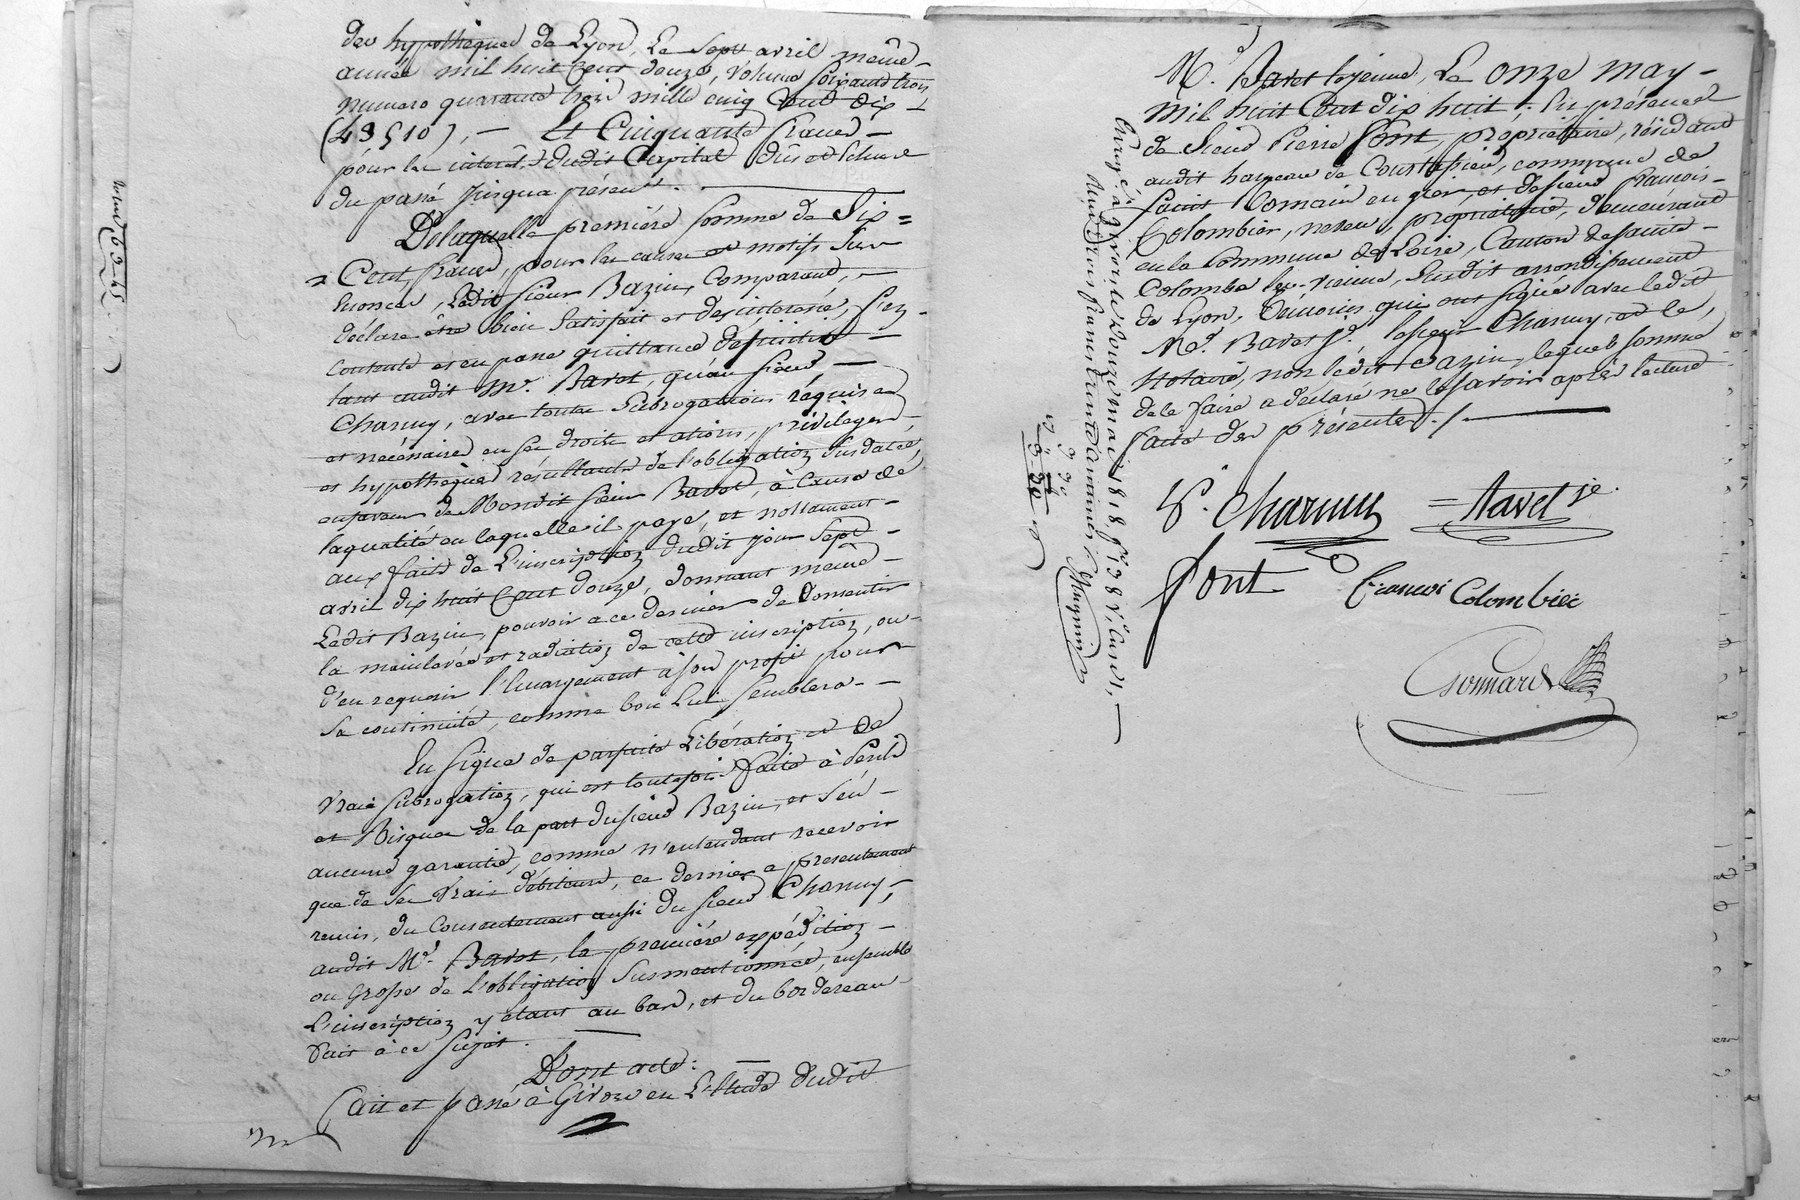 des hypotheques de Lyon, Le sept avril même
année mil huit Cent douze, volume soixante trois
numero quarante trois mille cinq Cent dix
(43510), — Et Cinquante francs —
pour les interêts dudit Capital dûs et échus
du passé jusqua présent. —
Delaquelle premiere somme de Six =
Cent francs, pour les causes et motifs sus
énoncés, Ledit sieur Bazin, Comparant, —
déclare être bien Satisfait et desinteressé, s'en
contente et en passe quittance définitive —
tant audit Mr. Bavet, qu'au sieur —
Charmy, avec toutes Subrogations réquises
et nécéssaires en ses droits et actions, privileges,
et hypothèques résultants de l'obligation susdatée,
en faveur de Mondit sieur Bavet, à Cause de
laqualité en laquelle il paye, et nottament —
aux faits de L'inscription dudit jour sept —
avril dix huit Cent douze, donnant même —
Ledit Bazin, pouvoir a ce dernier de Consentir
la mainlevée et radiation de cette inscription, ou
d'en requerir l'Emargement à son profit pour
sa continuité, comme bon Lui semblera. —
En signe de parfaite Libération et de
vraie subrogation, qui est toutefois faite à périls
et Risques de la part dusieur Bazin, et sen —
aucune garantie, comme n'entendant recevoir
que de ses vrais débiteurs, ce dernier a présentement
remis, du Consentement aussi du sieur Charmy,
audit Mr. Bavet, la première expédition —
ou Grosse de L'obligation Susmentionnée, ensemble
L'inscription y étant au bas, et du bordereau
fait à ce sujet. —
Dont acte:
fait et passé à Givors en L'Etude dudit
Mr. Bavet lejeune, Le onze may —
mil huit Cent dix huit; En présence
de Sieur Pierre font, propriétaire, résidant
audit hameau de
saint Romain en gier, et de sieur françois
Colombier, neveu, propriétaire, demeurant
en la Commune de Loire, Canton de sainte —
Colombe les-vienne, susdit arrondissement
de Lyon, témoins qui ont signé avec ledit
Mr. Bavet je. lesieur Charmy, et le,
Notaire, non ledit Bazin, lequel sommé
dele faire a déclaré ne le savoir après lecture
faite des présentes ./. —
P. Charmy = Bavet je.
font francoi Colombier
Gonnard
Enregé. à Givors le douze mai 1818 fo. 138